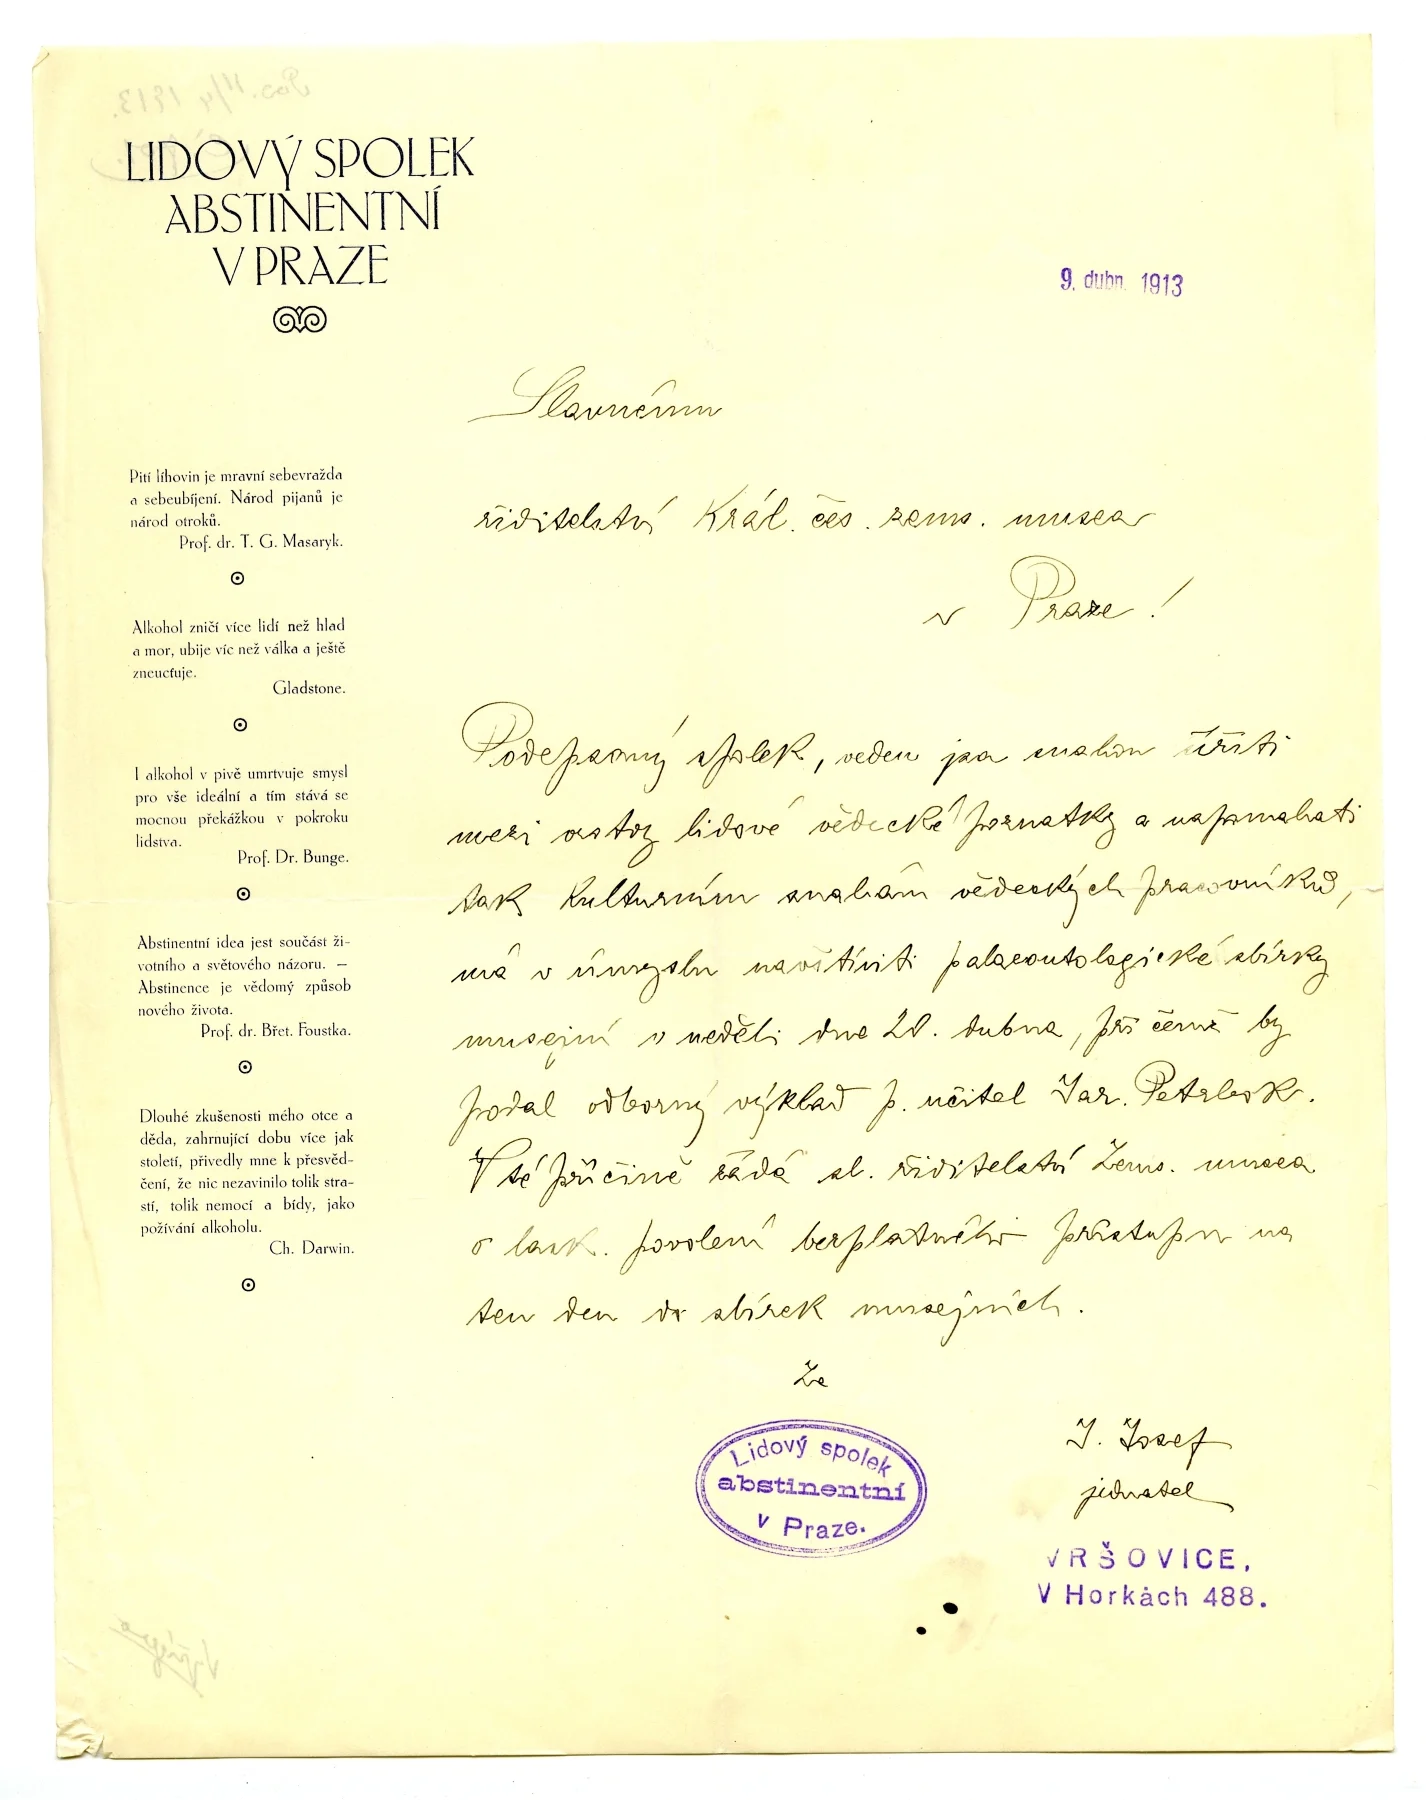 LIDOVÝ SPOLEK
ABSTINENTNÍ
V PRAZE
9. dubn. 1913
Slavnému
řiditelství Král. čes. zems. musea
v Praze!
Pití líhovin je mravní sebevražda
a sebeubíjení. Národ pijanů je
národ otroků.
Prof. dr. T. G. Masaryk.
Alkohol zničí více lidí než hlad
a mor, ubije víc než válka a ještě
zneucťuje.
Gladstone.
I alkohol v pivě umrtvuje smysl
pro vše ideální a tím stává se
mocnou překážkou v pokroku
lidstva.
Prof. Dr. Bunge.
Abstinentní idea jest součást ži-
votního a světového názoru. —
Abstinence je vědomý způsob
nového života.
Prof. dr. Břet. Foustka.
Dlouhé zkušenosti mého otce a
děda, zahrnující dobu více jak
století, přivedly mne k přesvěd-
čení, že nic nezavinilo tolik stra-
stí, tolik nemocí a bídy, jako
požívání alkoholu.
Ch. Darwin.
Podepsaný spolek, veden jsa snahou šířiti
mezi vrstvy lidové vědecké poznatky a napomahati
tak kulturním snahám vědeckých pracovníků,
má v úmyslu navštíviti palaeontologické sbírky
musejní v neděli dne 20. dubna, při čemž by
podal odborný výklad p. učitel Jar. Petrbok.
V té příčině žádá sl. řiditelství Zems. musea
o lask. povolení bezplatného přístupu na
ten den do sbírek musejních.
Za
Lidový spolek
abstinentní
v Praze.
J. Josef
jednatel
VRŠOVICE,
V Horkách 488.